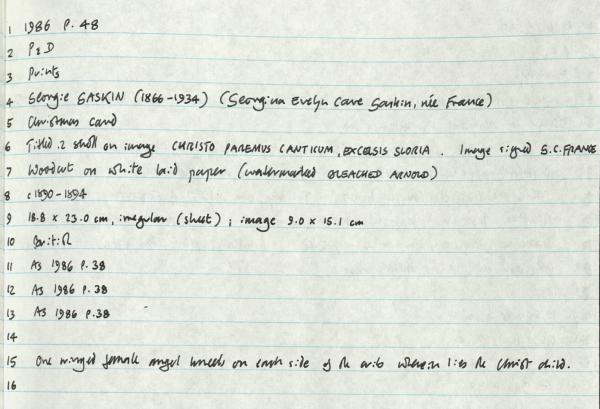 1 1986 P. 48
2 P&D
3 Prints
4 Georgie GASKIN (1866-1934) (Georgina Evelyn Cave Gaskin, née France)
5 Christmas card
6 Titled on image CHRISTO PAREMUS CANTICUM, EXCELSIS GLORIA. Image signed G.C. FRANCE
7 Woodcut on white laid paper (watermarked BLEACHED ARNOLD)
8 c1890-1894
9 18.8 x 23.0 cm, irregular (sheet); image 9.0 x 15.1 cm
10 British
11 As 1986 P.38
12 As 1986 P.38
13 As 1986 P.38
14
15 One winged female angel kneels on each side of the crib wherein lies the Christ child.
16